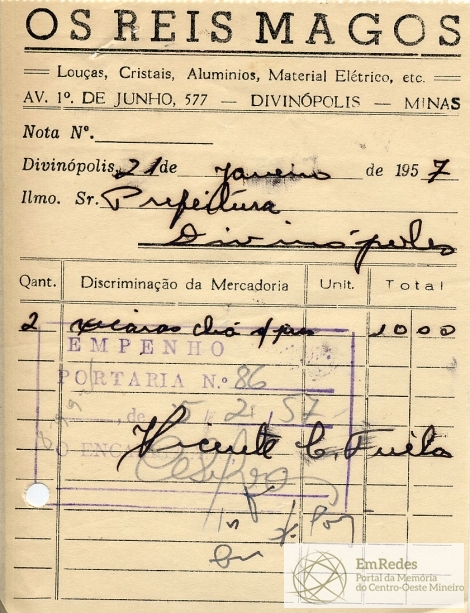 OS REIS MAGOS
Louças, Cristais, Aluminios, Material Elétrico, etc.
AV. 1º. DE JUNHO, 577 — DIVINÓPOLIS — MINAS
Nota Nº.
Divinópolis, 21 de janeiro de 1957
Ilmo. Sr. Prefeitura
Divinópoles
Qant. Discriminação da Mercadoria Unit. Total
2 xicaras chá 1000
EMPENHO
PORTARIA N.º 86
, de 5/2/57
O ENC
Vicente C.
EmRedes
Portal da Memória
do Centro-Oeste Mineiro